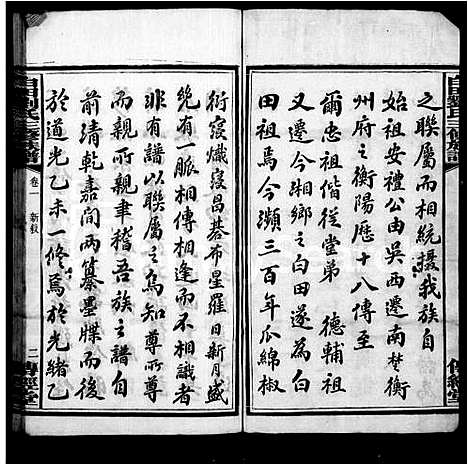 之聯屬而相統攝我族自
始祖安禮公由吳西遷南楚衡
州府之衡陽歷十八傳至
爾忠祖偕從堂弟 德輔祖
□遷於今湘鄉之白田遂為白
田祖焉今瀕三百年瓜綿椒
衍寖熾寖昌棊布星羅日新月盛
幾有一脈相傳相逢而不相識者
非有譜以聯屬之烏知尊所尊
而親所親聿稽吾族之譜自
前清乾嘉間兩纂墨牒而後
於道光乙未一修焉於光緒乙
白田劉氏三修族譜
卷一 新敘
二
傳經堂